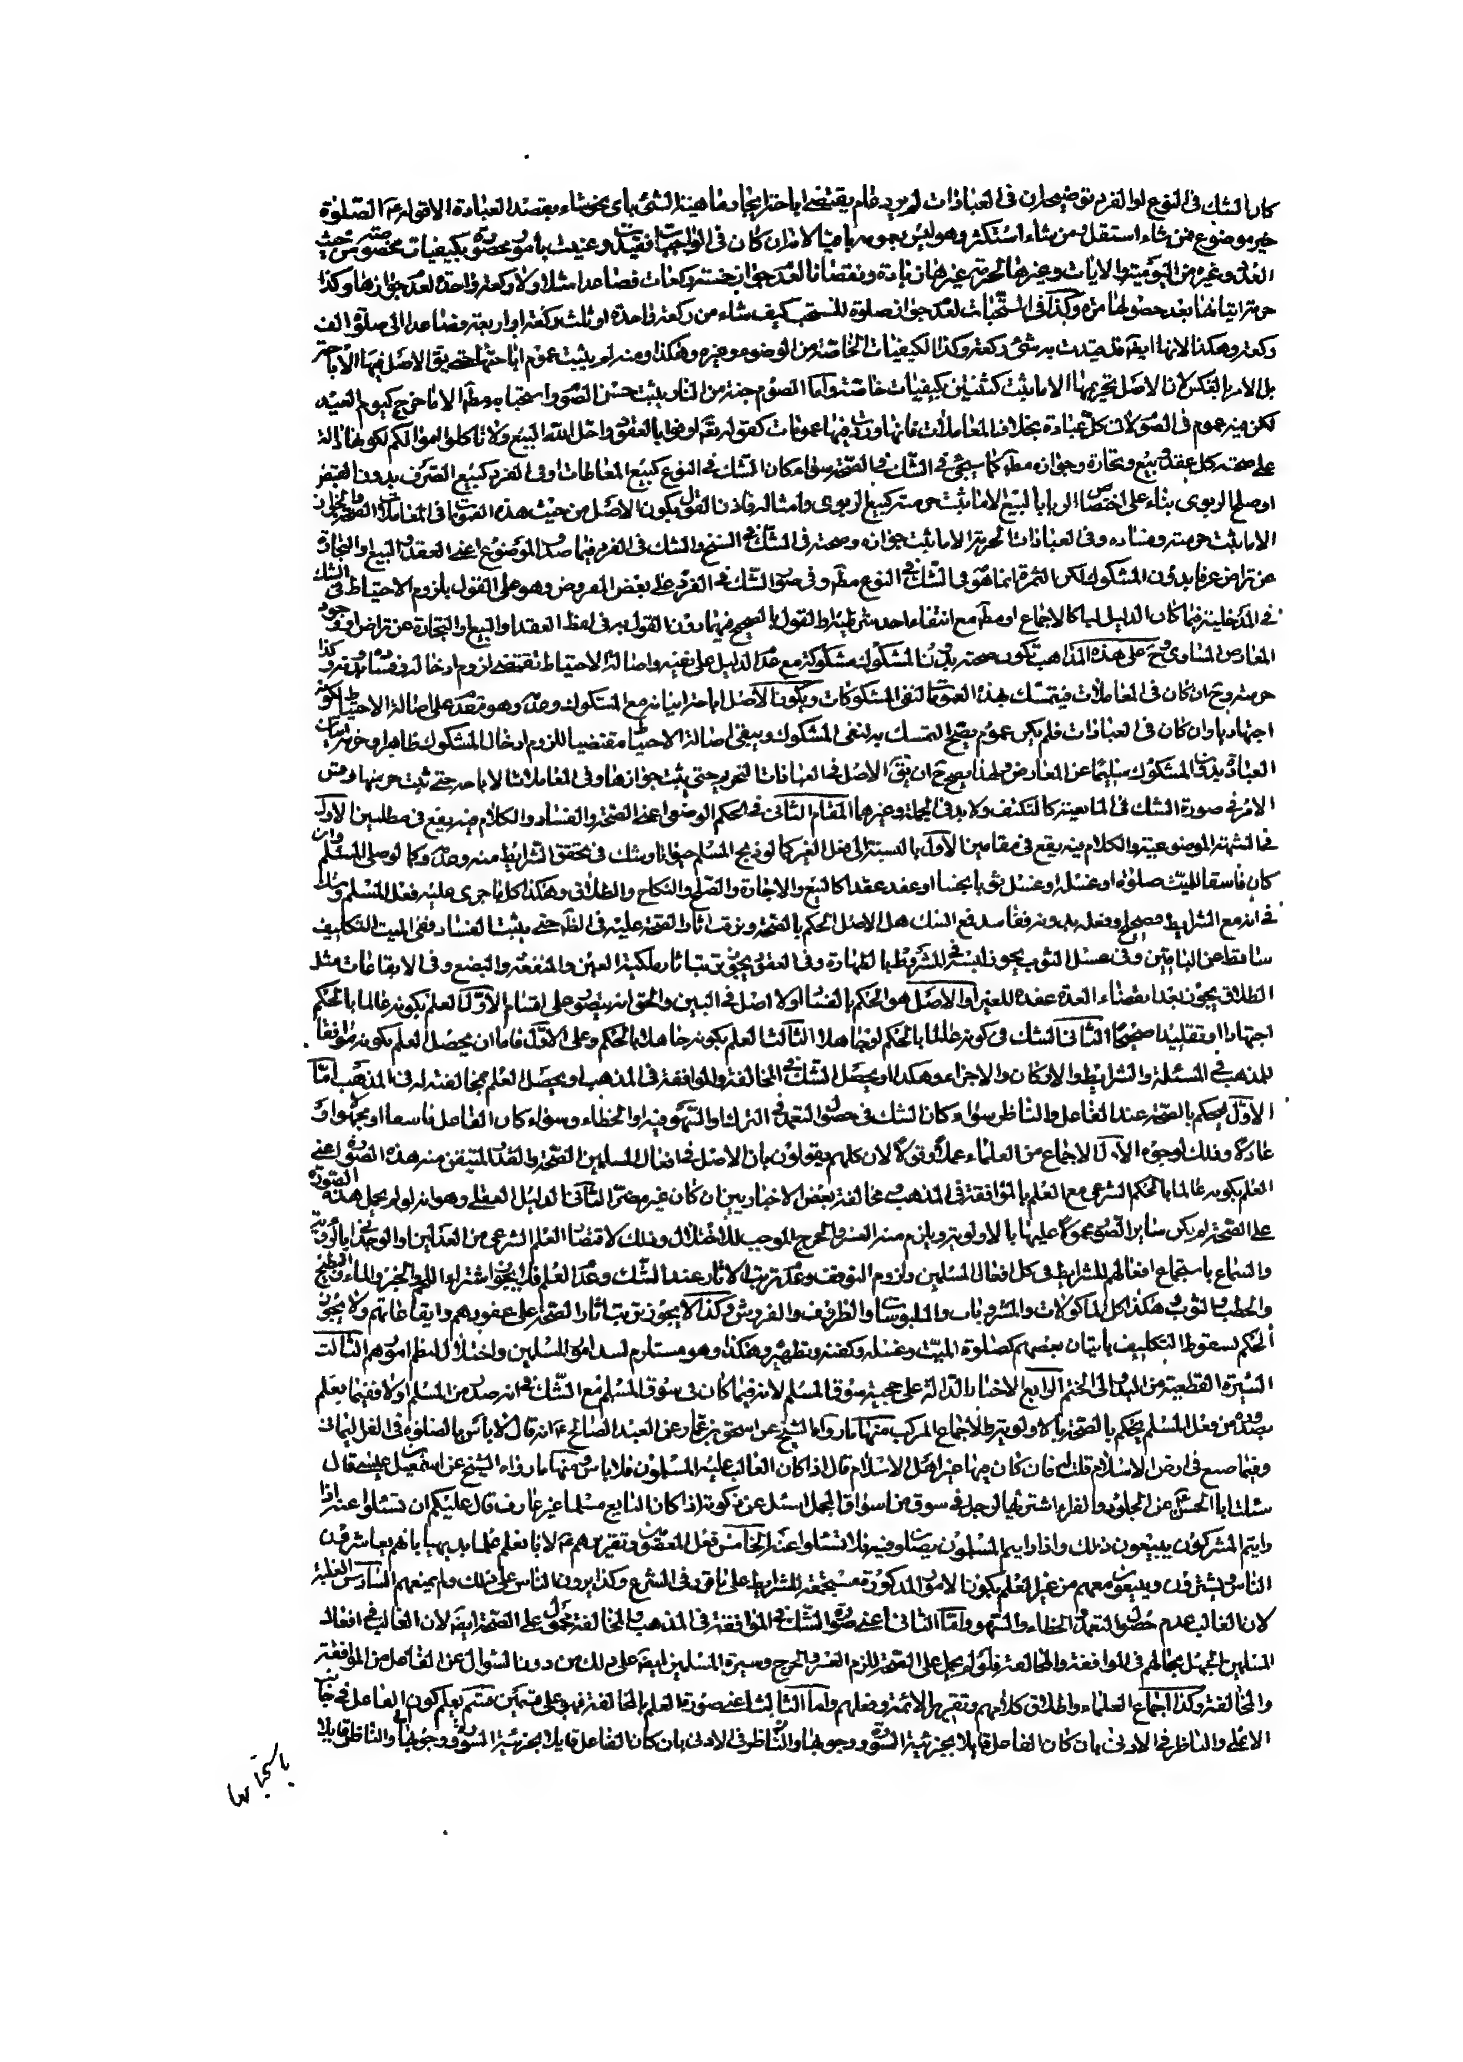 كان الشك فى النوع او الفرد توضيحه ان فى العبادات لم يرد عام يقتضى اباحة ايجاد ماهية الشئ باى نحو شاء بقصد العبادة الا قوله ع الصّلوة
خير موضوع فمن شاء استقل ومن شاء استكثر وهو ليس بعمومه باقيا لانه ان كان فى الواجبات فقيدت وعينت بامور مخصوصة بكيفيات مخصوصة من حيث
العدد وغيره من اليوميّة والايات وغيرها لحرمة غيرها زيادة ونقصانا لعدم جواز خمسة ركعات فصاعدا مثلا ولا ركعة واحدة لعدم جوازها وكذا
حرمة اتيانها بعد حصولها مرة وكذا فى المستحبات لعدم جواز صلوة للمستحب كيف شاء من ركعة واحدة او ثلث ركعة او اربعة وصاعدا الى صلوة الف
ركعة وهكذا لانها ايضا قد قيدت بشئ ركعة وكذا الكيفيات الخاصّة من الوضوء وغيره وهكذا ومنه لم يثبت عموم اباحتها حتى يبقى الاصل فيها الاباحة
بل الامر بالعكس لان الاصل تحريمها الا ما ثبت كثنتين بكيفيات خاصّة وامّا الصّوم جنة من النار يثبت حسن الصّوم واستحبابه مطلقا الا ما خرج كيوم العيد
لكن فيه عموم فى الصّوم لا فى كل عبادة بخلاف المعاملات فانها ورد فيها عمومات كقوله تعالى اوفوا بالعقود واحل الله البيع ولا تاكلوا اموالكم لكونها دالة
على صحة كل عقد وبيع وتجارة وجوازه مطلقا كما سيجئ فى الشّك فى الصّحة سواء كان الشّك فى النوع كبيع المعاطات او فى الفرد كبيع الصّرف بدون القبض
او صلح الربوى بناء على اختصاص الربا بالبيع الا ما ثبت حرمته كبيع الربوى وامثاله فلاذ القول بكون الاصل من حيث هذه القضية فى المعاملات الصّحة والجواز
الا ما ثبت حرمته وفساده وفى العبادات الحرمة الا ما ثبت جوازه وصحته فى الشّك فى النسخ والشك فى الفرد فيما صدق الموضوع اعنى العقد والبيع والتجارة
عن تراض عرفا بدون المشكوك لكن الثمرة انما هو فى الشّك فى النوع مطلقا وفى صورة الشّك فى الفرد على بعض الفروض وهو على القول بلزوم الاحتياط فى الشك
فى المدخلية فيما كان الدليل لبيا كالاجماع او مطلقا مع انتفاء احد شرايط القول بالصحيح فيها دون القول به فى لفظ العقد والبيع والتجارة عن تراض او وجود
المعارض المساوى فح على هذه المذاهب تكون صحته بدون المشكوك مشكوكة مع عدم الدليل على نفيه واصالة الاحتياط تقتضى لزوم ادخاله وفساده بدونه وكذا
حرمته وح ان كان فى المعاملات فيتمسك بهذه العمومات لنفى المشكوكات ويكون الاصل اباحة اتيانه مع المشكوك وعدمه وهو مقدم على اصالة الاحتياط لكونه
اجتهاديا وان كان فى العبادات فلم يكن عموم يصحّ التمسك به لنفى المشكوك ويبقى اصالة الاحتياط مقتضيا للزوم ادخال المشكوك ظاهرا وحرمة اتيان
العبادة بدون المشكوك سليما عن المعارض ولهذا يصح ح ان يق الاصل فى العبادات التحريم حتى يثبت جوازها وفى المعاملات الاباحة حتى ثبت حرمتها وقس
الامر فى صورة الشك فى المانعية كالتكتف ولا بد فى الجملة وغيرها المقام الثانى فى الحكم الوضعى اعنى الصّحة والفساد والكلام فيه يقع فى مطلبين الاول
فى الشبهة الموضوعية والكلام فيه يقع فى مقامين الاول بالنسبة الى فعل الغير كما لو ذبح المسلم حيوانا وشك فى تحقق الشرايط منه وعدمه وكما لو صلى المسلم وان
كان فاسقا للميت صلوة او غسله او غسل ثوبا نجسا او عقد عقدا كالبيع والاجارة والصّلح والنكاح والطلاق وهكذا كل ما جرى عليه فعل المسلم وشك
فى انه مع الشرايط فصيح او فعله بدونه ففاسد فمع الشك هل الاصل الحكم بالصّحة وترتب اثار الصّحة عليه فى الظاهر حتى يثبت الفساد ففى الميت التكليف
ساقط عن الباقين وفى غسل الثوب يجوز لبسه فى المشروط بالطهارة وفى العقود يجوز ترتب اثار ملكية العين والمنفعة والبضع وفى الايقاعات مثل
الطلاق يجوز بعد انقضاء العدة عقده للغير او الاصل هو الحكم بالفساد او لا اصل فى البين والحق انه يتصور على اقسام الاوّل العلم بكونه عالما بالحكم
اجتهادا او تقليدا صحيحا الثانى الشك فى كونه عالما بالحكم او جاهلا الثالث العلم بكونه جاهلا بالحكم وعلى الاوّل فاما ان يحصل العلم بكونه موافقا
للمذهب فى المسئلة والشرايط والاركان والاجزاء وهكذا او يحصل الشّك فى المخالفة والموافقة فى المذهب او يحصل العلم بمخالفته له فى المذهب امّا
الاوّل فيحكم بالصّحة عند الفاعل والناظر سواء كان الشك فى حصول التعمد فى الترك او السّهو فيه او الخطاء وسواء كان الفاعل فاسقا او مجهولا او
عادلا وذلك لوجوه الاول الاجماع من العلماء عملا وقولا لان كلهم يقولون بان الاصل فى افعال المسلمين الصّحة والقدر المتيقن منه هذه الصّورة اعنى
العلم بكونه عالما بالحكم الشرعى مع العلم بالموافقة فى المذهب ومخالفة بعض الاخباريين ان كان غير مضرّ الثانى الدليل العقلى وهو انه لو لم يحمل هذه الصّورة
على الصّحة لم يكن ساير الصّور محمولا عليها بالاولوية ويلزم منه العسر والحرج الموجب للاختلال وذلك لاقتضاء العلم الشرعى من العدلين والوجدانى بالرؤية
والسّماع باستجماع افعالهم للشرايط فى كل افعال المسلمين ولزوم التوقف وعدم ترتب الاثار عند الشّك وعدم العلم فلا يجوز اشتراء اللحم والخبز والماء والبطيخ
والحطب والثوب وهكذا كل الماكولات والمشروبات والملبوسات والظروف والفروش وكذا لا يجوز ترتب اثار الصّحة على عقودهم وايقاعاتهم ولا يجوز
الحكم بسقوط التكليف باتيان بعضهم كصلوة الميّت وغسله وكفنه وتطهيره وهكذا وهو مستلزم لسد امور المسلمين واختلال لنظم امورهم الثالث
السّيرة القطعية من المبدء الى الختم الرابع الاخبار الدّالة على حجية سوق المسلم لانه فيما كان فى سوق المسلم مع الشّك فى انه صدر من المسلم او لا ففيما يعلم
صدوره من فعل المسلم يحكم بالصّحة بالاولوية والاجماع المركب منها ما رواه الشيخ عن اسحق بن عمار عن العبد الصّالح ع انه قال لا باس بالصلوة فى الفراء اليمانى
وفيما صنع فى ارض الاسلام قلت له فان كان فيها غير اهل الاسلام قال اذا كان الغالب عليه المسلمون فلا باس ومنها ما رواه الشيخ عن اسمعيل بن عيسى قال
سئلت ابا الحسن ع عن الجلود والفراء اشتريها الرجل فى سوق من اسواق الجبل اسئل عن ذكوته اذا كان البايع مسلما غير عارف قال عليكم ان تسئلوا عنه اذا
رايتم المشركون يبيعون ذلك واذا رايتم المسلمون يصلّون فيه فلا تسئلوا عنه الخامس فعل المعصومين وتقريرهم ع لانا نعلم علما بديهيا بانهم يعاشرون
الناس ويشترون ويبيعون معهم من غير العلم بكون الامور المذكورة مستجمعة للشرايط على ما قرر فى الشرع وكذا يرون الناس على ذلك ولم يمنعهم السّادس الغلبة
لان الغالب عدم حصول التعمد والخطاء والسّهو وامّا الثانى اعنى صورة الشّك فى الموافقة فى المذهب والمخالفة فمحمول على الصّحة ايضا لان الغالب فى افعال
المسلمين الجهل بحالهم فى الموافقة والمخالفة فلو لم يحمل على الصّحة للزم العسر والحرج وسيرة المسلمين ايضا على ذلك من دون السّؤال عن الفاعل من الموافقة
والمخالفة وكذا اجماع العلماء واطلاق كلامهم وتقرير الائمة وفعلهم واما الثالث اعنى صورة العلم بالمخالفة فهو على قسمين قسم يعلم كون الفاعل فى جانب
الاعلى والناظر فى الادنى بان كان الفاعل قايلا بجزئية السّورة ووجوبها والناظر فى الادنى بان كان الفاعل قايلا بجزئية السّورة ووجوبها والناظر قايلا
باستحبابها